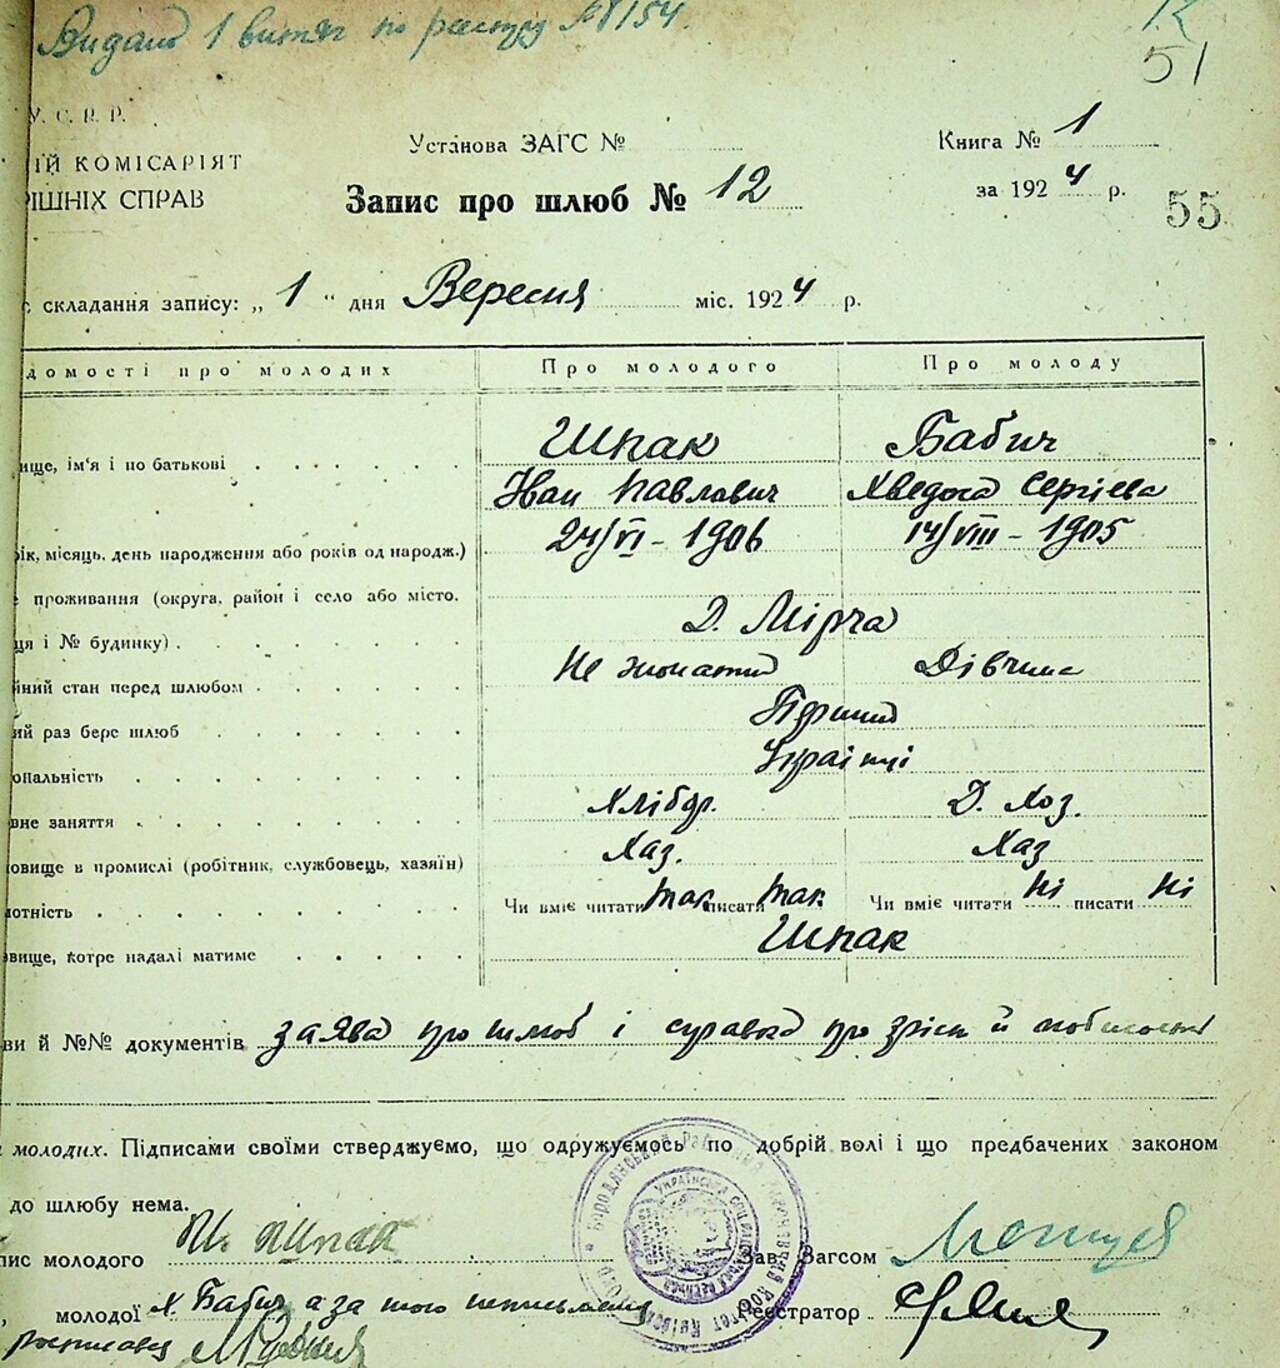 Видано 1 витяг по реєстру №8154.
12
51
У. С. Р. Р.
ІЙ КОМІСАРІЯТ
РІШНІХ СПРАВ
Установа ЗАГС №
Книга № 1
Запис про шлюб № 12
за 1924 р.
55
складання запису: „ 1 “ дня Вересня міс. 1924 р.
домості про молодих
Про молодого
Про молоду
ище, ім'я і по батькові
Шпак
Бабич
Іван Павлович
Хведося Сергієва
рік, місяць, день народження або років од народж.)
24/VI - 1906
14/VIII - 1905
проживання (округа, район і село або місто,
ця і № будинку)
Д. Мірча
йний стан перед шлюбом
Не жонатий
Дівчина
ий раз бере шлюб
Перший
ональність
Українці
вне заняття
Хлібор.
Д. Хоз.
овище в промислі (робітник, службовець, хазяїн)
Хаз.
Хаз
отність
Чи вміє читати так писати так
Чи вміє читати ні писати ні
вище, котре надалі матиме
Шпак
ви й №№ документів заява про шлюб і справка про зріст й
молодих. Підписами своїми стверджуємо, що одружуємось по добрій волі і що предбачених законом
до шлюбу нема.
пис молодого Шпак
Зав. Загсом
молодої Х. Бабич, а за негр неписьменну
Реєстратор
росписався